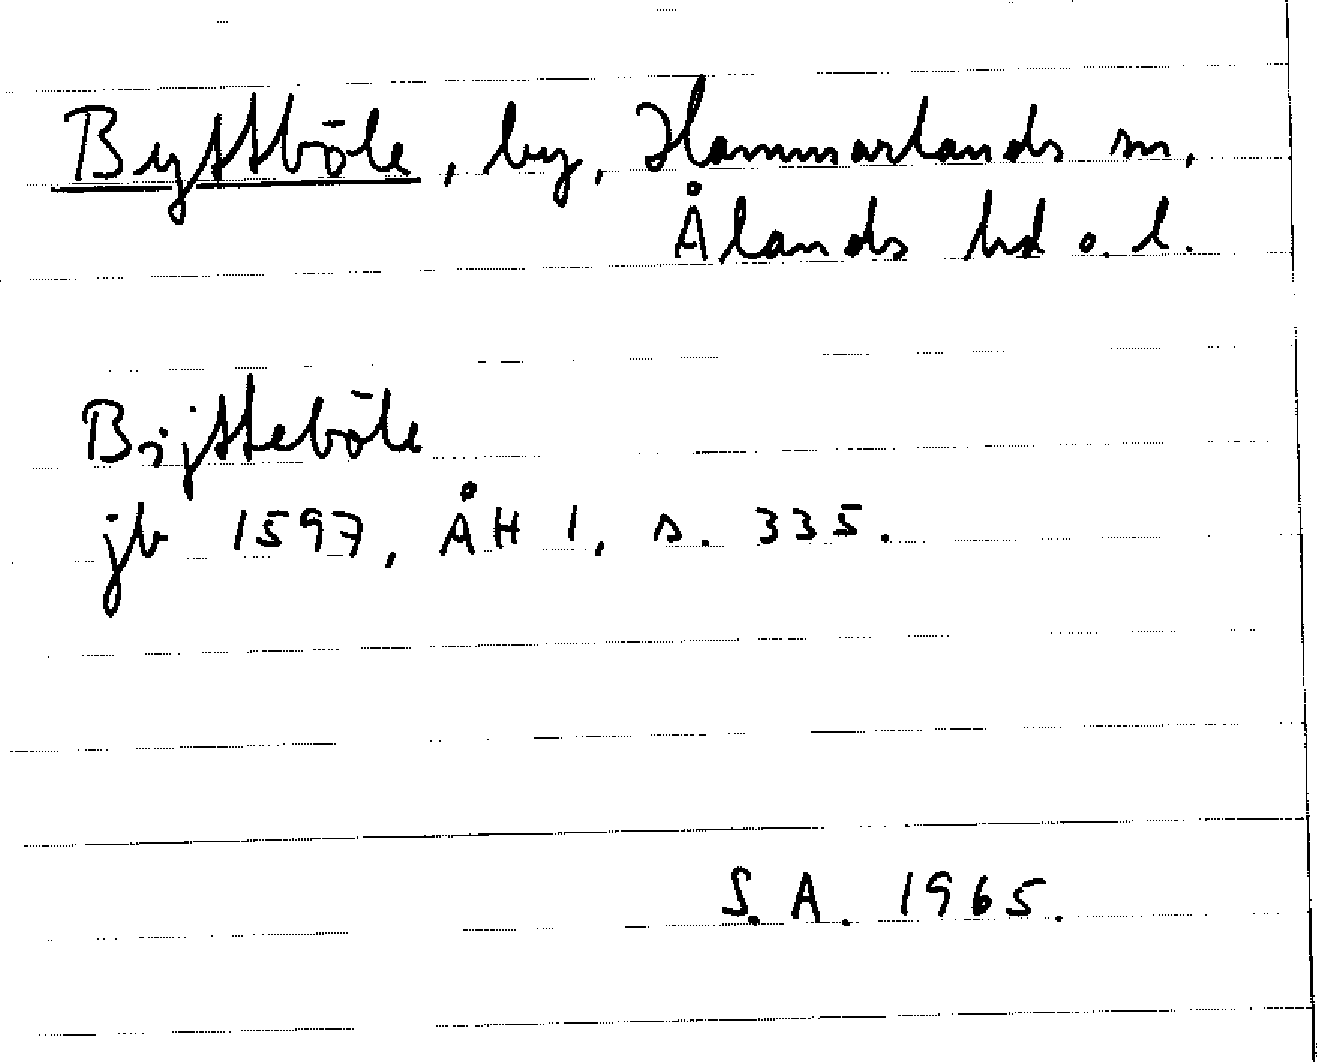 Byttböle, by, Hammarlands sn,
Ålands hd o. l.
Bijtteböle
jb 1597, ÅH 1, s. 335.
S. A. 1965.